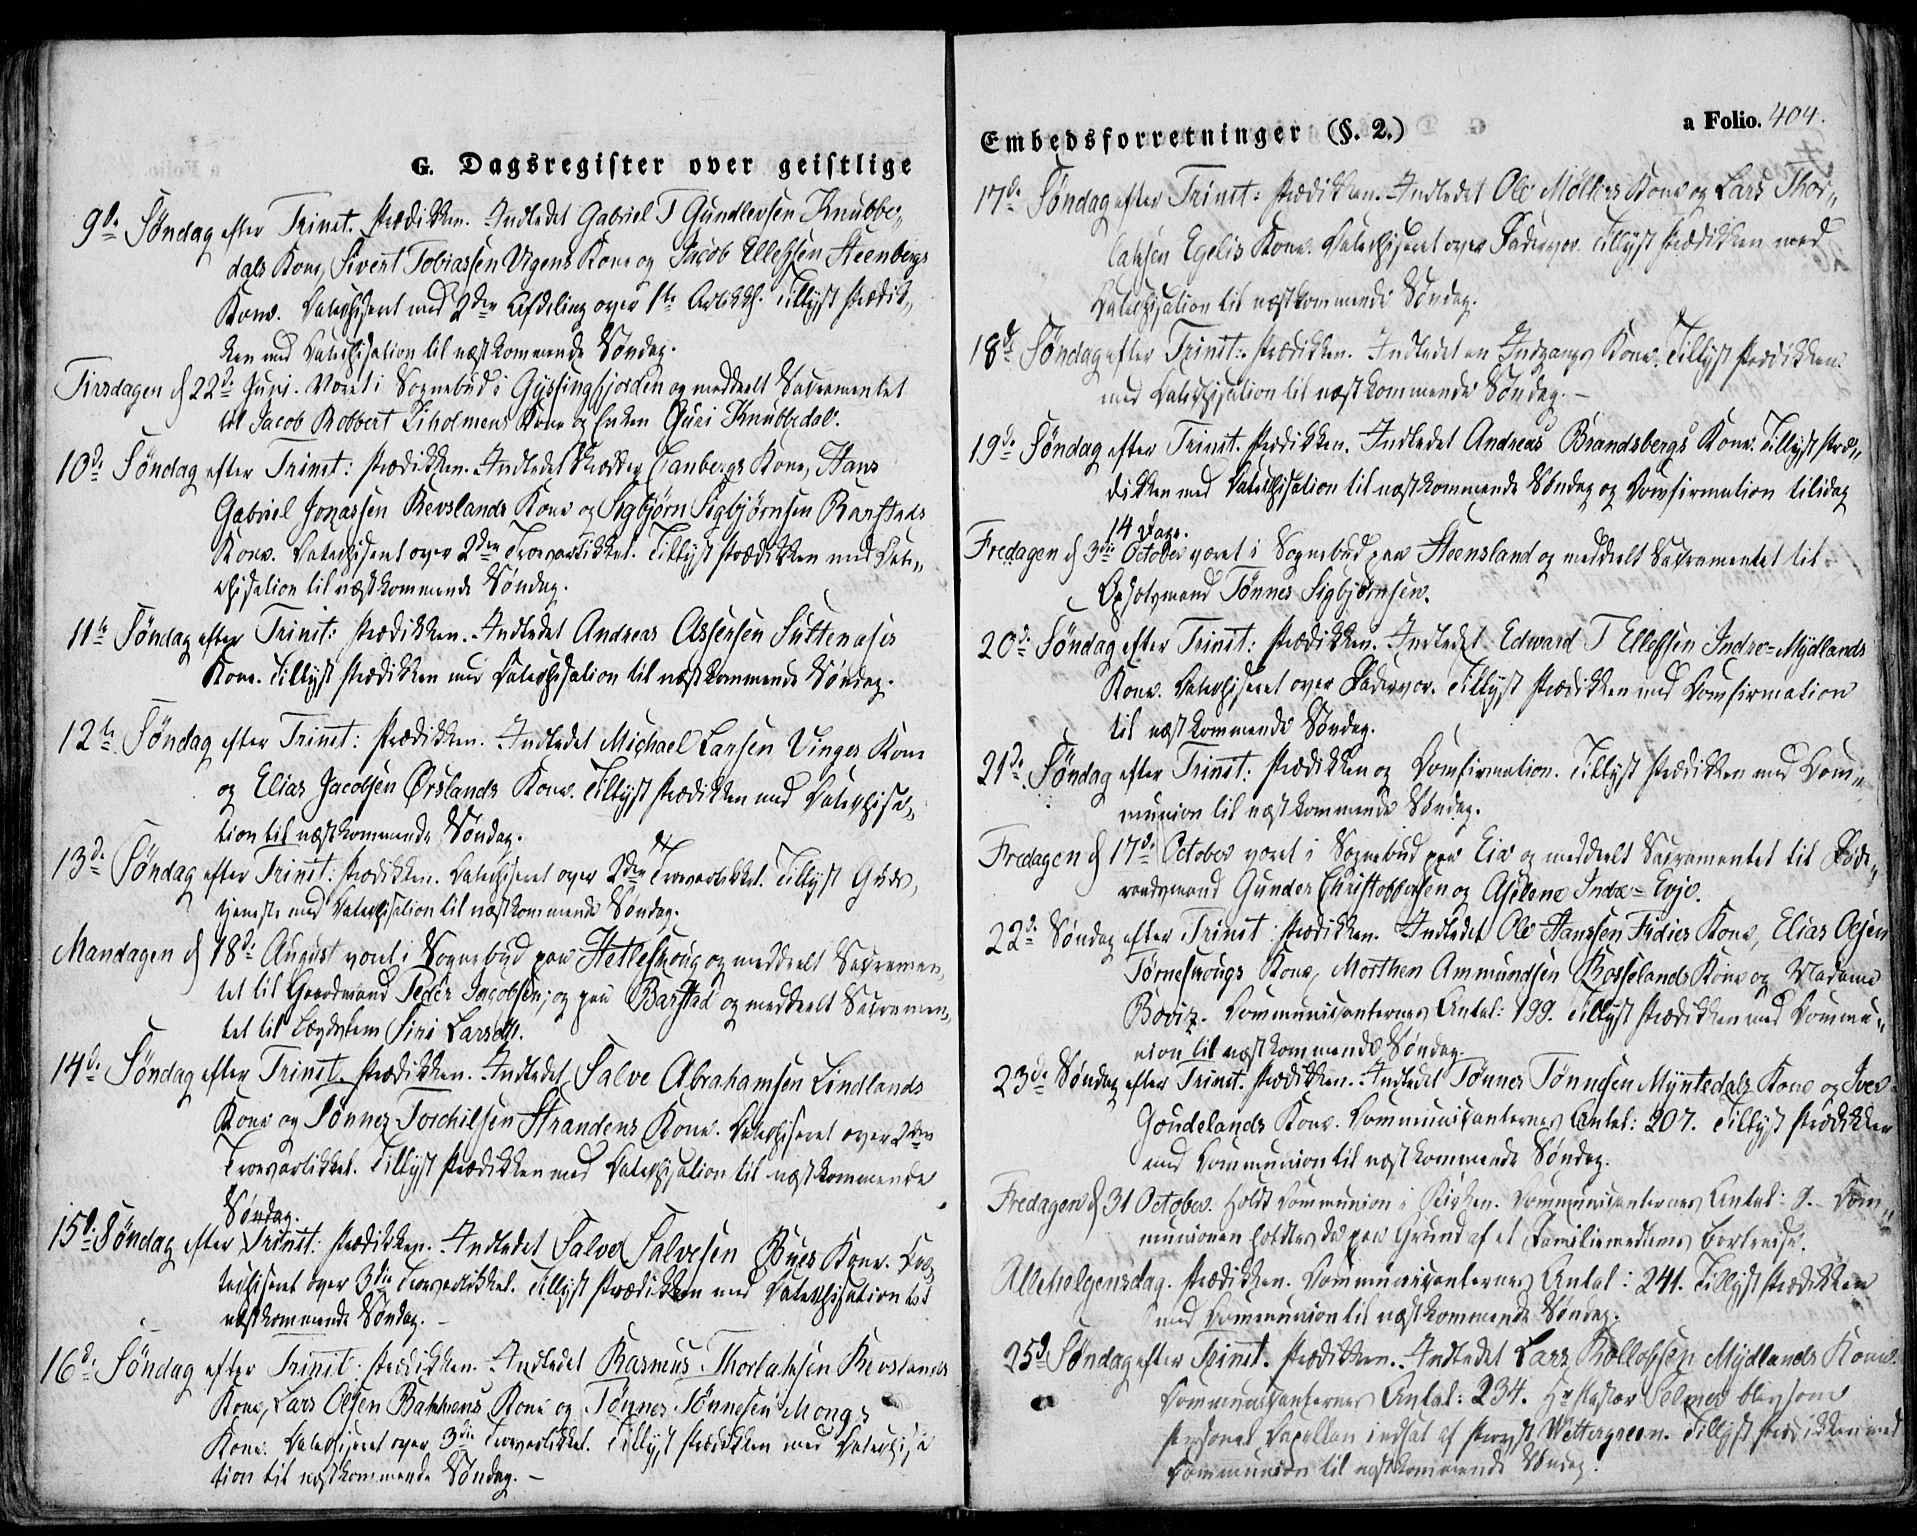 G. Dagsregister over geistlige
9de Søndag efter Trinit. Prædikken. Indledet Gabriel T Gundlevsen Knubbe„
dals Kone, Sivert Tobiassen Urgens Kone og Jacob Ellefsen Steenbergs
Kone. Catechiseret med 2den Afdeling over 1ste Artikkl. Tillyst Prædik„
ken med Catechisation til næstkommende Søndag.
Tirsdagen d 22de Juni. Været i Sognebud i Gyssingfjorden og meddeelt Sacramentet
til Jacob Robbert Liholmens Kone og Enken Guri Knubbedal.
10de Søndag efter Trinit: Prædikken. Indledet Skrædder Tanbergs Kone, Hans
Gabriel Jonassen Revslands Kone og Sigbjørn Sigbjørnsen Barstads
Kone. Catechiseret over 2den Troesartikkel. Tillyst Prædikken med Cate„
chisation til næstkommende Søndag.
11te Søndag efter Trinit: Prædikken. Indledet Andreas Assersen
Kone. Tillyst Prædikken med Catechisation til næstkommende Søndag.
12te Søndag efter Trinit: Prædikken. Indledet Michael Larsen Kone
og Elias Jacobsen Ørslands Kone. Tillyst Prædikken med Catechisa„
tion til næstkommende Søndag.
13de Søndag efter Trinit. Prædikken. Catechiseret over 2den Troesartikkel. Tillyst Guds„
tjeneste med Catechisation til næstkommende Søndag.
Mandagen d 18de August været i Sognebud paa Hetleskoug og meddeelt Sacramen„
tet til Gaardmand Peder Jacobsen; og paa Barstad og meddeelt Sacramen„
tet til Lægdslem Siri Larsdtt.
14de Søndag efter Trinit. Prædikken. Indledet Salve Abrahamsen Lindlands
Kone og Tønnes Torchilsen Strandens Kone. Catechiseret over 2den
Troesartikkel. Tillyst Prædikken med Catechisation til næstkommende
Søndag.
15de Søndag efter Trinit: Prædikken. Indledet Salve Salvesen Bues Kone. Ca„
techiseret over 3die Troesartikkel. Tillyst Prædikken med Catechisation til
næstkommende Søndag. –
16de Søndag efter Trinit. Prædikken. Indledet Rasmus Thorlaksen Revslands
Kone, Lars Olsen Bakkens Kone og Tønnes Tønnesen Mongs
Kone. Catechiseret over 3die Troesartikkel. Tillyst Prædikken med Catechisa
tion til næstkommende Søndag. –
Embedsforretninger (§. 2.)
a Folio. 404.
17de Søndag efter Trinit: Prædikken. Indledet Ole Møllers Kone og Lars Thor„
laksen Egelis Kone. Catechiseret over Fadervor. Tillyst Prædikken med
Catechisation til næstkommende Søndag.
18de Søndag efter Trinit: Prædikken. Indledet en Indgangs Kone. Tillyst Prædikken
med Catechisation til næstkommende Søndag. –
19de Søndag efter Trinit. Prædikken. Indledet Andreas Brandsbergs Kone. Tillyst Præ„
dikken med Catechisation til næstkommende Søndag og Confirmation tilidag
14 Dage.
Fredagen d 3die October været i Sognebud paa Steensland og meddeelt Sacramentet til
Tønnes Sigbjørnsen.
20de Søndag efter Trinit: Prædikken. Indledet Edward T Ellefsen Indre=Mydlands
Kone. Catechiseret over Fadervor. Tillyst Prædikken med Confirmation
til næstkommende Søndag.
21de Søndag efter Trinit: Prædikken og Confirmation. Tillyst Prædikken med Com„
munion til næstkommende Søndag.
Fredagen d 17de October været i Sognebud paa Eia og meddeelt Sacramentet til Føde„
raadsmand Gunder Christophersen og Asilene Indre=Evje.
22de Søndag efter Trinit: Prædikken. Indledet Ole Hanssen Kone, Elias Olsen
Tørneskougs Kone, Morthen Ammundsen Rosselands Kone og Madame
Bovitz. Communicanternes Antal: 199. Tillyst Prædikken med Commu„
nion til næstkommende Søndag.
23de Søndag efter Trinit. Prædikken. Indledet Tønnes Tønnesen Myntedals Kone og Iver
Goudelands Kone. Communicanternes Antal: 207. Tillyst Prædikken
med Communion til næstkommende Søndag.
Fredagen d 31 October. Holdt Communion i Kirken. Communicanternes Antal: 9. – Com„
munionen holdtes da paa Grund af et Familiemedlems Bortreise.
Allehelgensdag. Prædikken. Communicanternes Antal: 241. Tillyst Prædikken
med Communion til næstkommende Søndag.
25de Søndag efter Trinit. Prædikken. Indledet Lars Rolloffsen Mydlands Kone.
Communicanternes Antal: 234. Hr Pastor Selmer blev som
personel Capellan indsat af Provst Wettergreen. Tillyst Prædikken med
Communion til næstkommende Søndag.